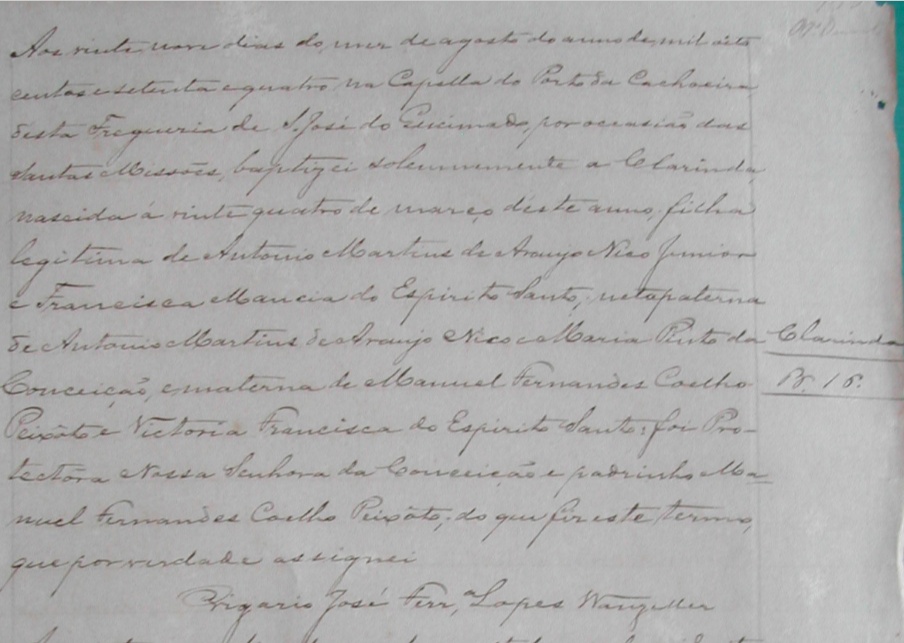 Aos vinte nove dias do mez de agosto do anno de mil oito
centos e setenta e quatro, na Capella do Porto da Cachoeira
desta Freguezia de S. José do Queimado, por occasião das
Santas Missões, baptizei solemnemente a Clarinda,
nascida á vinte quatro de março deste anno, filha
legitima de Antonio Martins de Araujo Nico Junior
e Francisca Maucia do Espirito Santo; neta paterna
de Antonio Martins de Araujo Nico e Maria Pinto da
Clarinda
Conceição, e materna de Manuel Fernandes Coelho
Br. 1 S.
Peixôto e Victoria Francisca do Espirito Santo: foi Pro-
tectôra Nossa Senhora da Conceição e padrinho Ma-
nuel Fernandes Coelho Peixôto; do que fiz este termo,
que por verdade assignei
Vigario José Ferr.ª Lopes Wanzeller